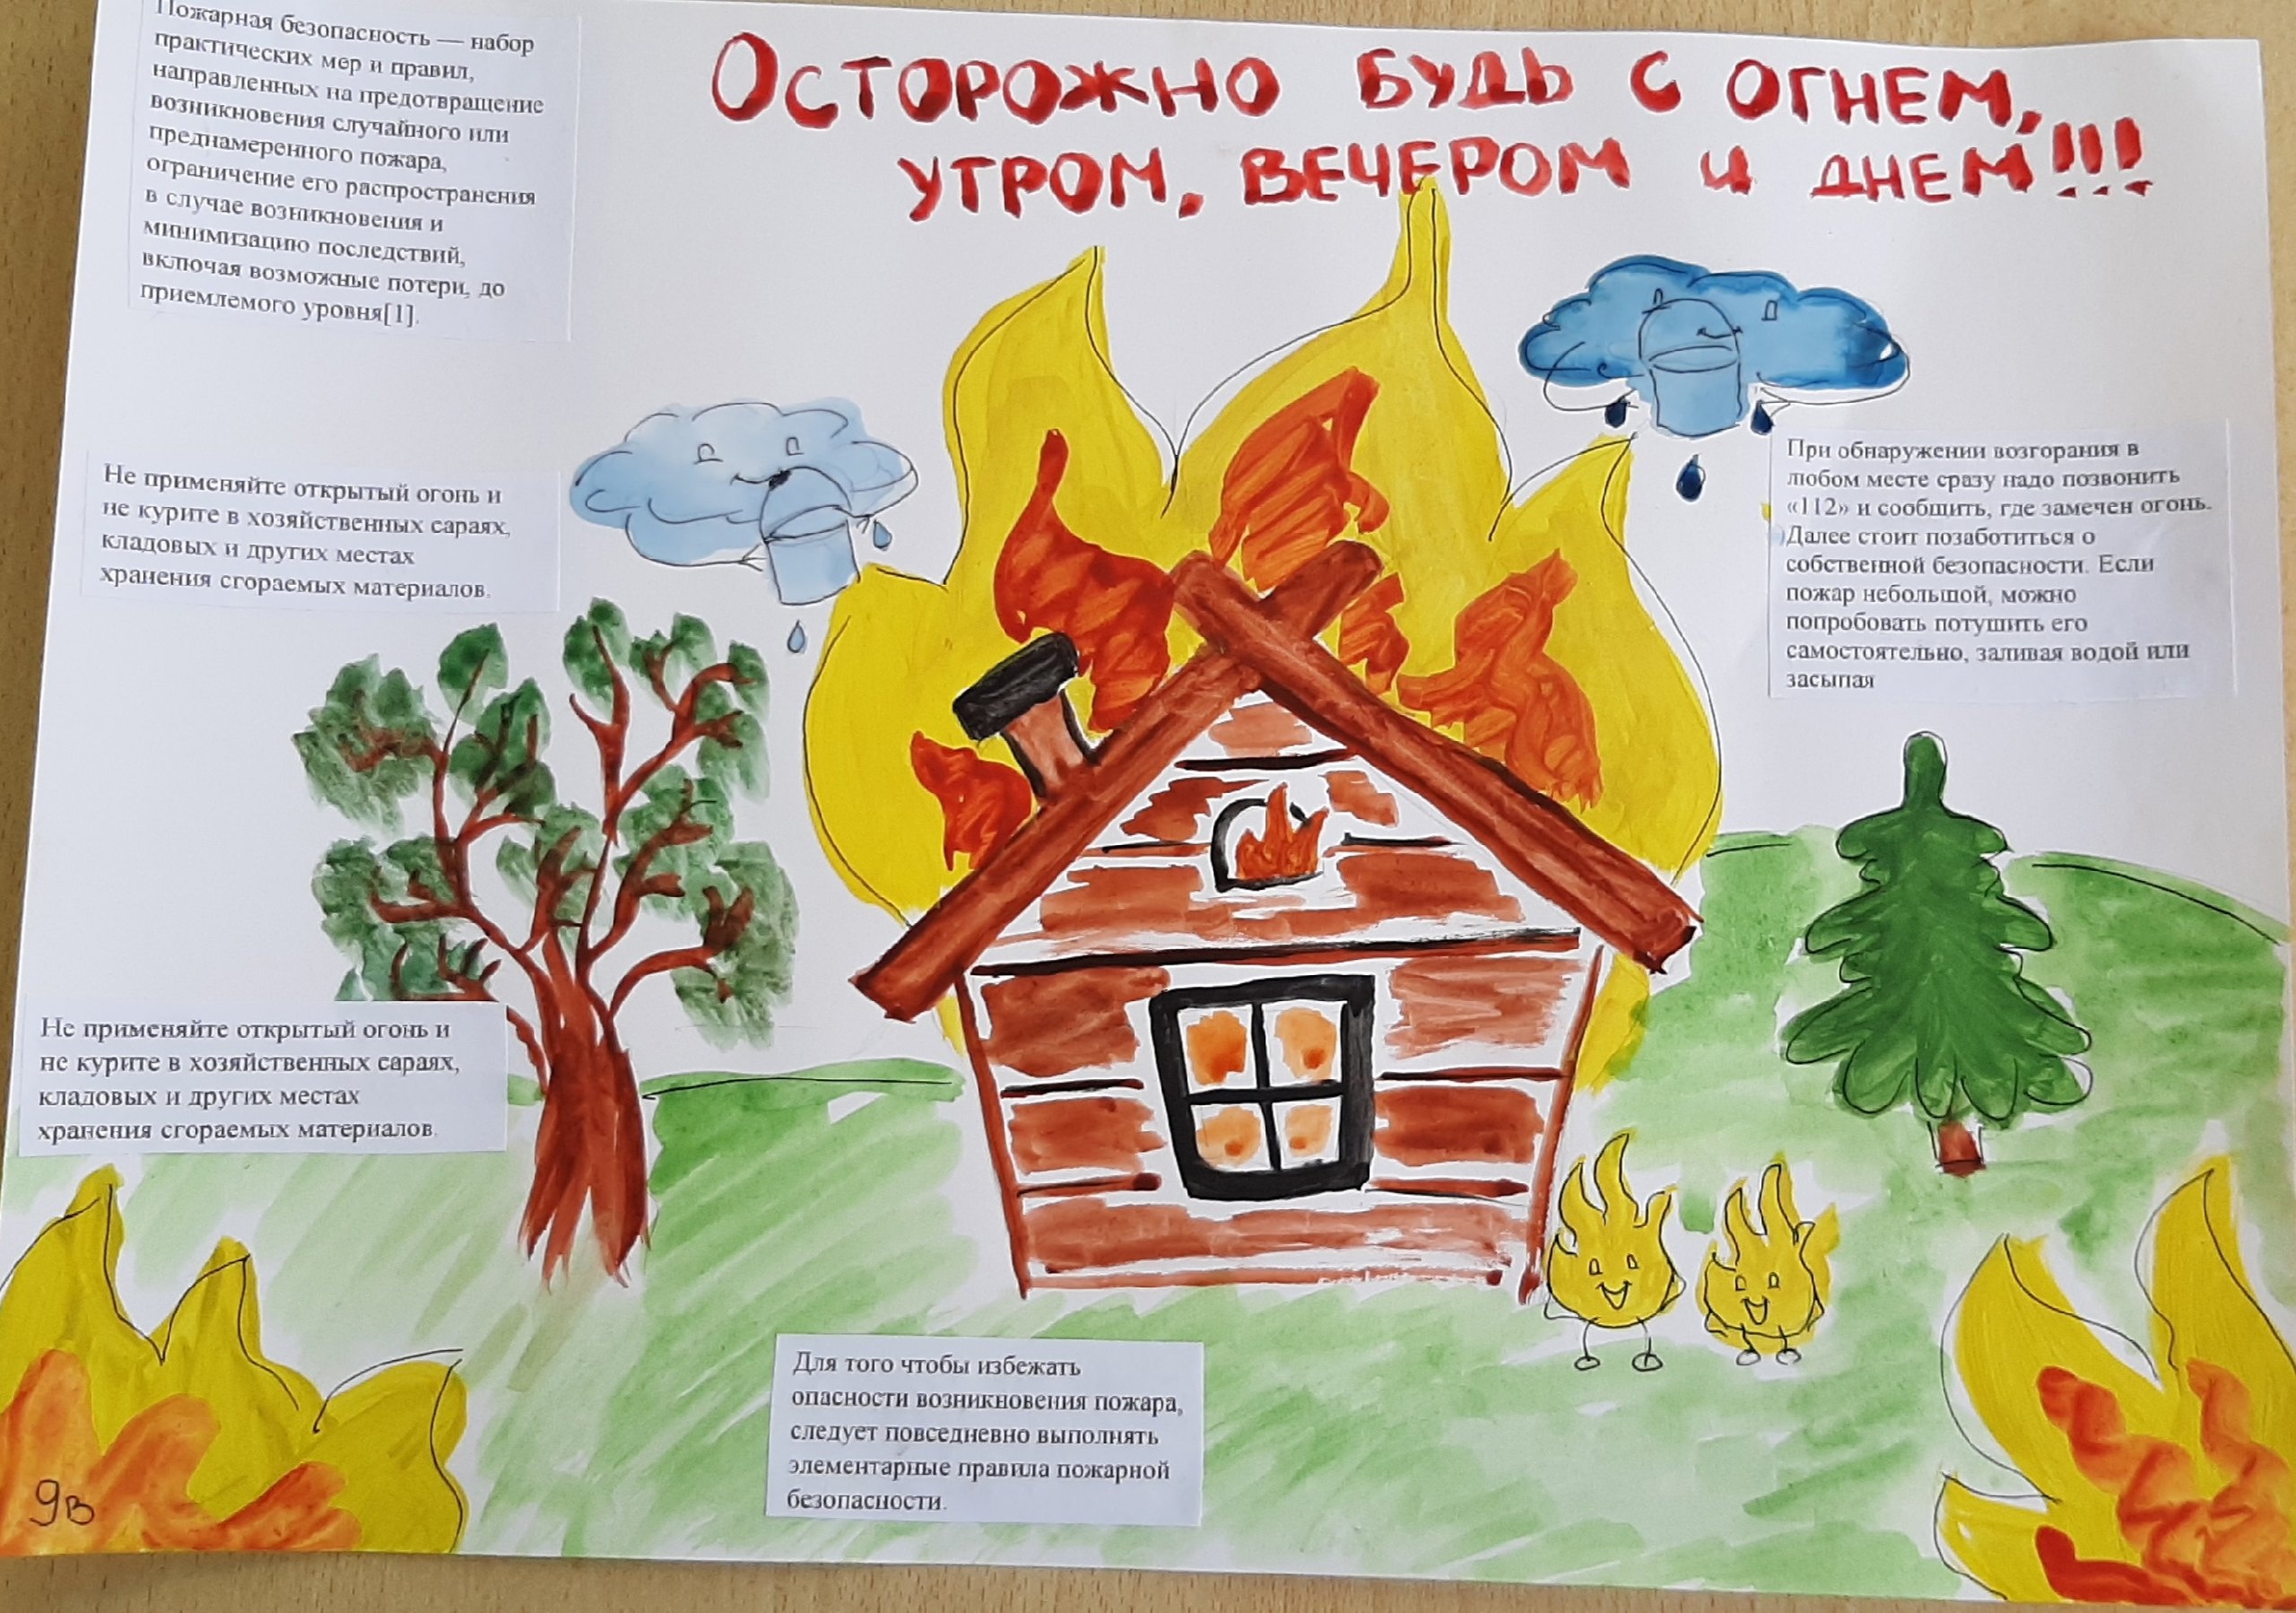 Осторожно будь с огнем,
утром, вечером и днем!!!
Пожарная безопасность — набор
практических мер и правил,
направленных на предотвращение
возникновения случайного или
преднамеренного пожара,
ограничение его распространения
в случае возникновения и
минимизацию последствий,
включая возможные потери, до
приемлемого уровня[1].
Не применяйте открытый огонь и
не курите в хозяйственных сараях,
кладовых и других местах
хранения сгораемых материалов.
При обнаружении возгорания в
любом месте сразу надо позвонить
«112» и сообщить, где замечен огонь.
Далее стоит позаботиться о
собственной безопасности. Если
пожар небольшой, можно
попробовать потушить его
самостоятельно, заливая водой или
засыпая
Не применяйте открытый огонь и
не курите в хозяйственных сараях,
кладовых и других местах
хранения сгораемых материалов.
Для того чтобы избежать
опасности возникновения пожара,
следует повседневно выполнять
элементарные правила пожарной
безопасности.
9в